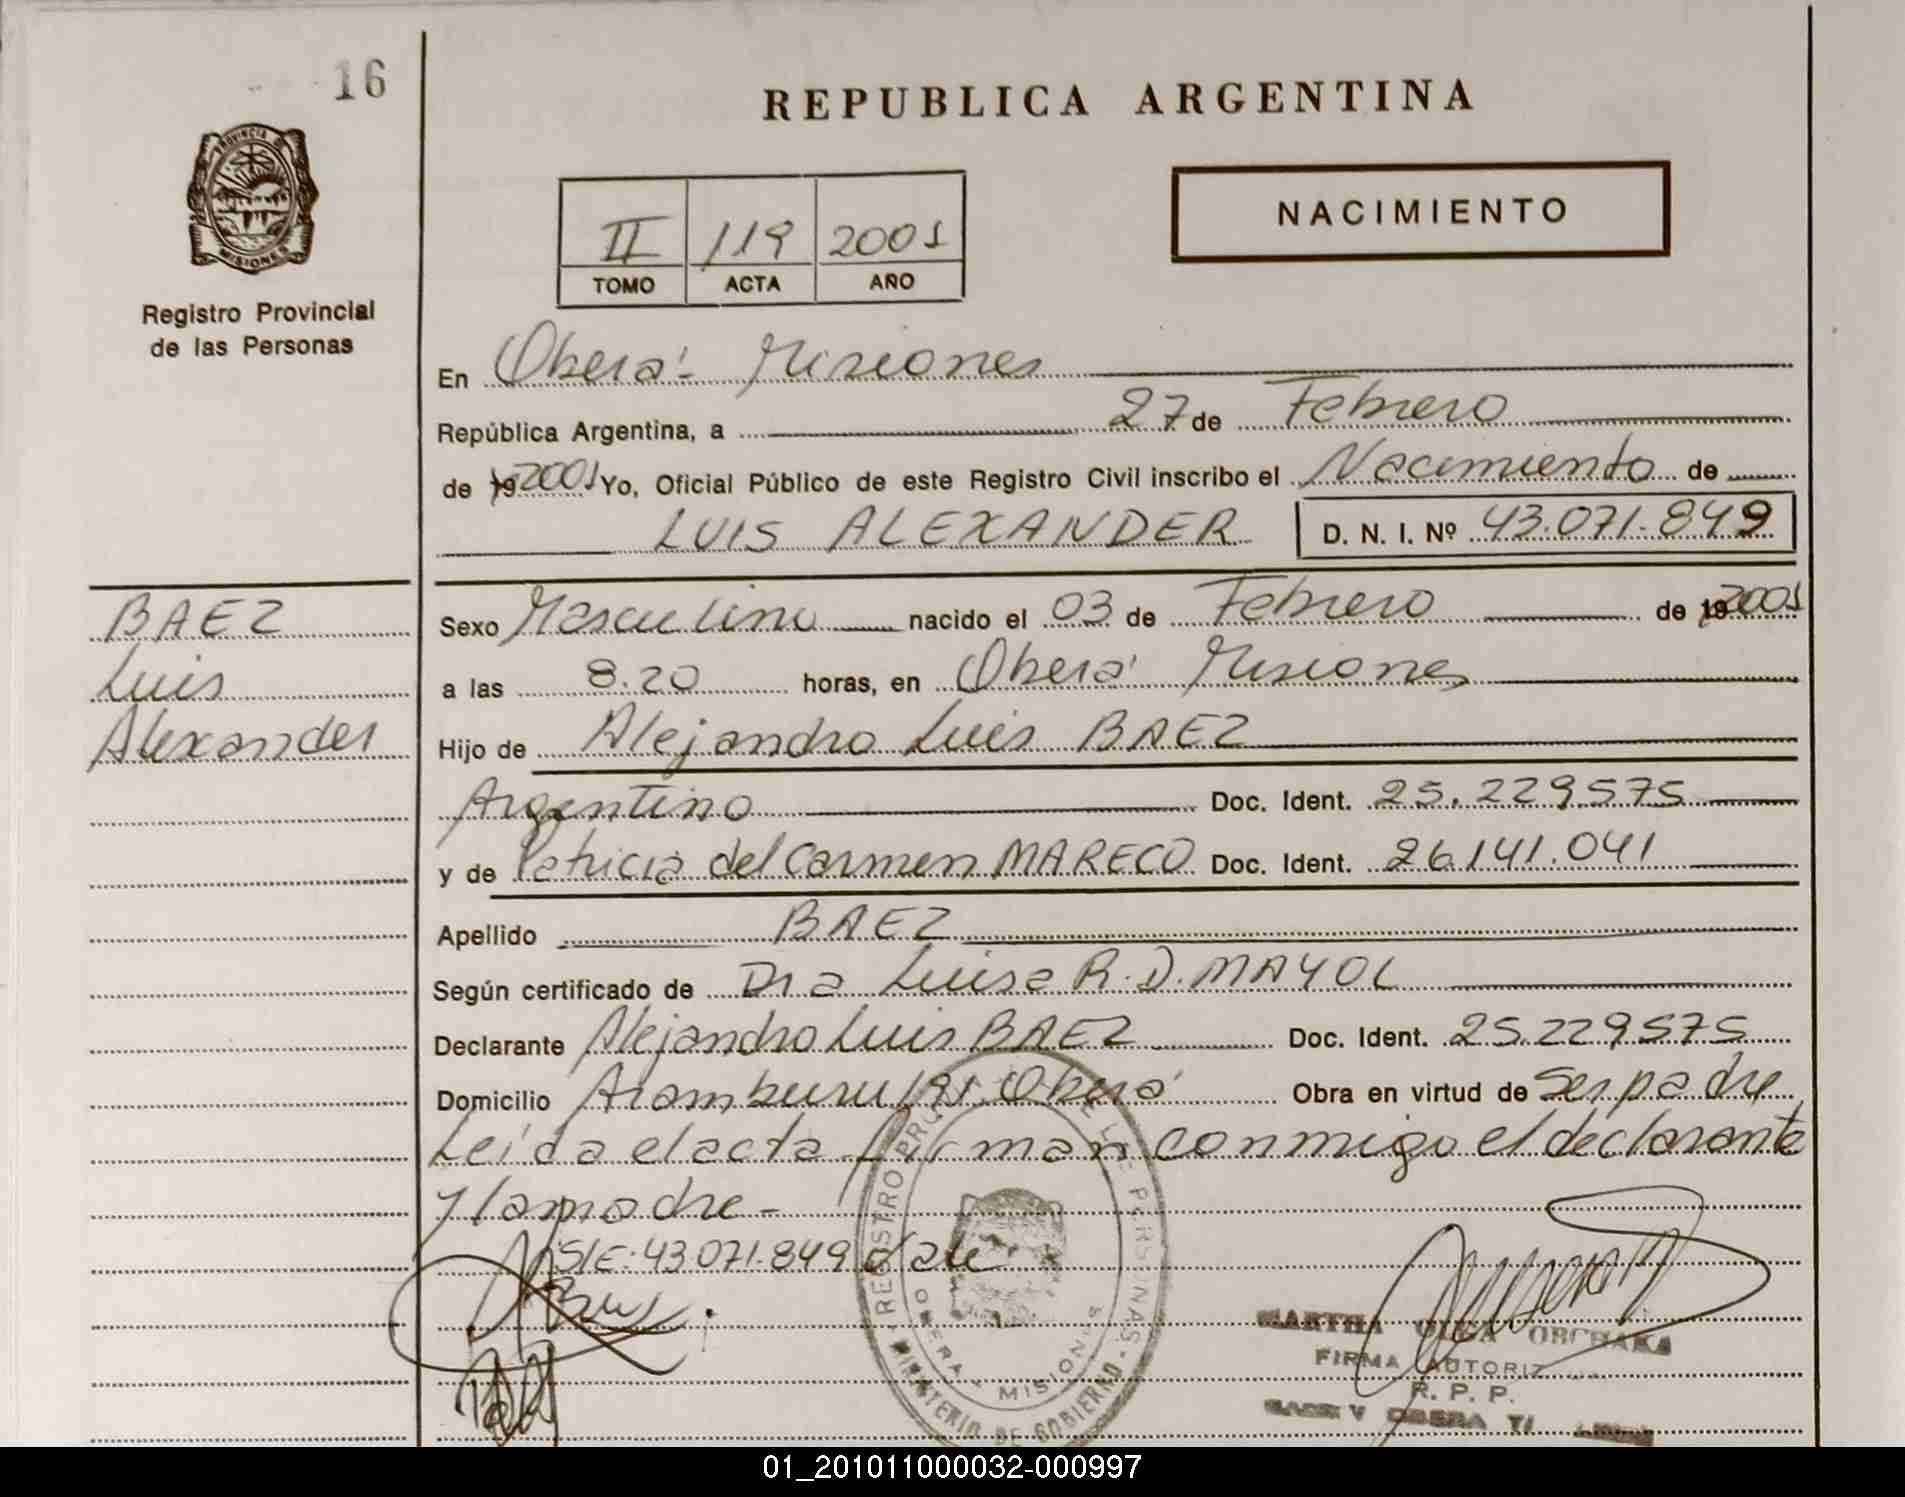 16
REPUBLICA ARGENTINA
PROVINCIA DE
MISIONES
Registro Provincial
de las Personas
II 119 2001
TOMO ACTA AÑO
NACIMIENTO
En Oberá - Misiones
República Argentina, a 27 de Febrero
de 19 2001 Yo, Oficial Público de este Registro Civil inscribo el Nacimiento de
LUIS ALEXANDER D. N. I. Nº 43.071.849
BAEZ
Luis
Alexander
Sexo Masculino nacido el 03 de Febrero de 19 2001
a las 8.20 horas, en Oberá Misiones
Hijo de Alejandro Luis BAEZ
Argentino Doc. Ident. 25.229575
y de Patricia del Carmen MARECO Doc. Ident. 26.141.041
Apellido BAEZ
Según certificado de Dra Luisa R. D. MAYOL
Declarante Alejandro Luis BAEZ Doc. Ident. 25.229575
Domicilio Aramburu 191. Oberá Obra en virtud de ser padre
Leída el acta firman conmigo el declarante
y la madre -
S/E: 43.071.849 vale
REGISTRO PROV DE LAS PERSONAS
OBERA - MISIONES
MINISTERIO DE GOBIERNO
MARTHA OLGA ORCHAKA
FIRMA AUTORIZ
R. P. P.
OBERA
01_201011000032-000997